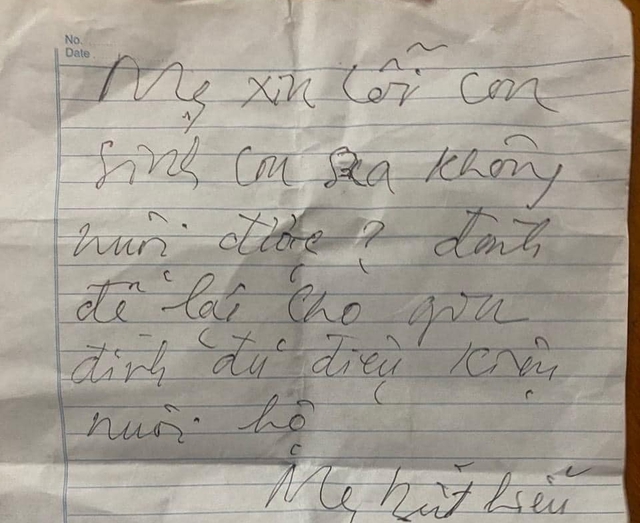 No.
Date
Mẹ xin lỗi con
Sinh con ra không
nuôi được? đành
để lại cho gia
đình đủ điệu kiện
nuôi hộ
Mẹ